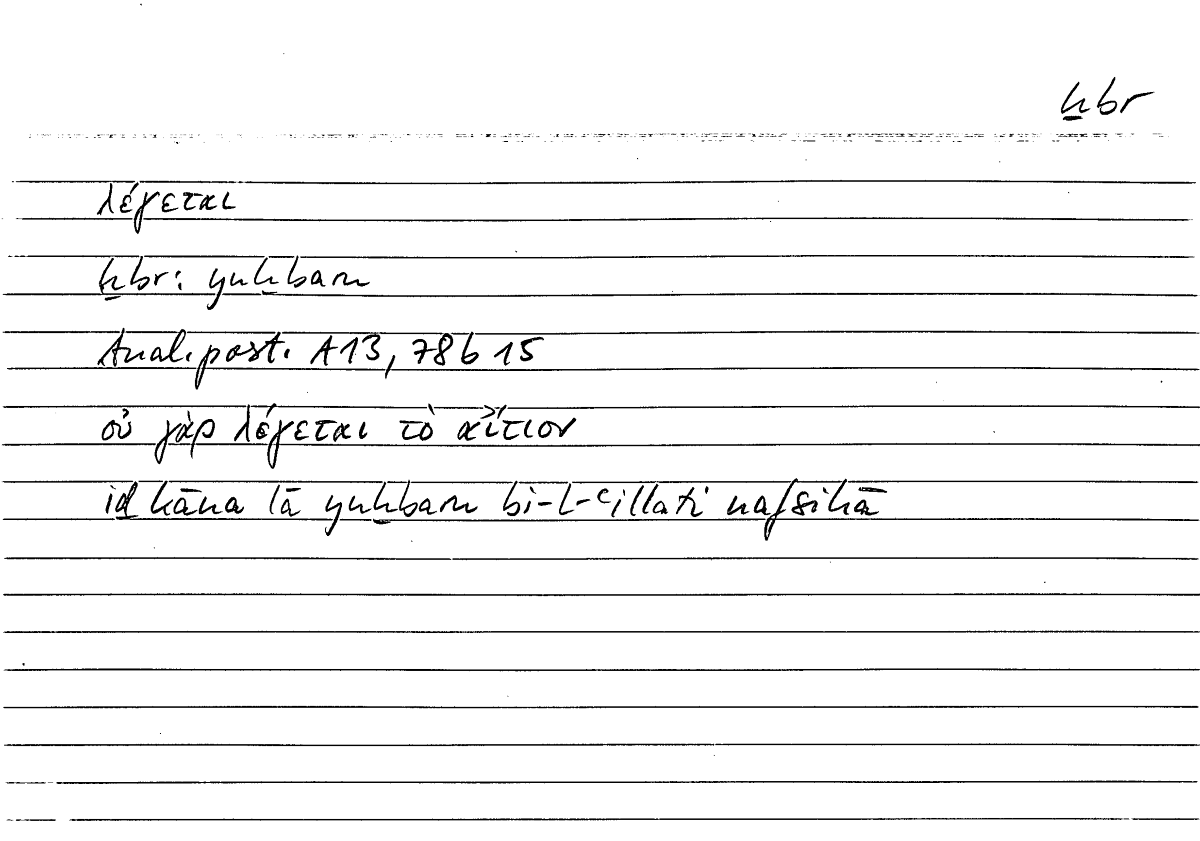 ḫbr
λέγεται
ḫbr: yuḫbaru
Anal. post. A13, 78b 15
οὐ γὰρ λέγεται τὸ αἴτιον
iḏ kāna lā yuḫbaru bi-l-ʿillati nafsihā